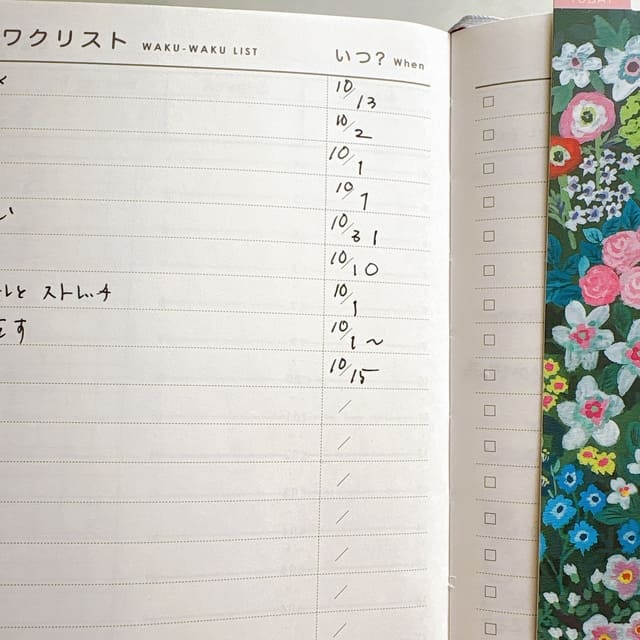 TODAY
ワクリスト WAKU-WAKU LIST いつ? When
10/13
10/2
10/1
10/7
い 10/31
10/10
ルと ストレッチ 10/1
をす 10/1~
10/15
/
/
/
/
/
/
/